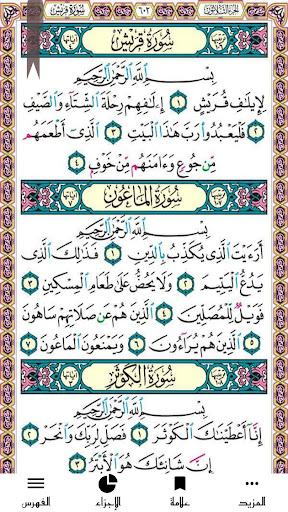 سورة قريش ٦٠٢ الجزء الثلاثون
سُورَةُ قُرَيْشٍ
بِسْمِ ٱللَّهِ ٱلرَّحْمَٰنِ ٱلرَّحِيمِ
لِإِيلَٰفِ قُرَيْشٍ ١ إِۦلَٰفِهِمْ رِحْلَةَ ٱلشِّتَآءِ وَٱلصَّيْفِ
٢ فَلْيَعْبُدُوا۟ رَبَّ هَٰذَا ٱلْبَيْتِ ٣ ٱلَّذِىٓ أَطْعَمَهُم
مِّن جُوعٍ وَءَامَنَهُم مِّنْ خَوْفٍۭ ٤
سُورَةُ المَاعُونِ
بِسْمِ ٱللَّهِ ٱلرَّحْمَٰنِ ٱلرَّحِيمِ
أَرَءَيْتَ ٱلَّذِى يُكَذِّبُ بِٱلدِّينِ ١ فَذَٰلِكَ ٱلَّذِى
يَدُعُّ ٱلْيَتِيمَ ٢ وَلَا يَحُضُّ عَلَىٰ طَعَامِ ٱلْمِسْكِينِ
٣ فَوَيْلٌ لِّلْمُصَلِّينَ ٤ ٱلَّذِينَ هُمْ عَن صَلَاتِهِمْ سَاهُونَ
٥ ٱلَّذِينَ هُمْ يُرَآءُونَ ٦ وَيَمْنَعُونَ ٱلْمَاعُونَ ٧
سُورَةُ الكَوْثَرِ
بِسْمِ ٱللَّهِ ٱلرَّحْمَٰنِ ٱلرَّحِيمِ
إِنَّآ أَعْطَيْنَٰكَ ٱلْكَوْثَرَ ١ فَصَلِّ لِرَبِّكَ وَٱنْحَرْ ٢
إِنَّ شَانِئَكَ هُوَ ٱلْأَبْتَرُ ٣
المزيد علامة الاجزاء الفهرس